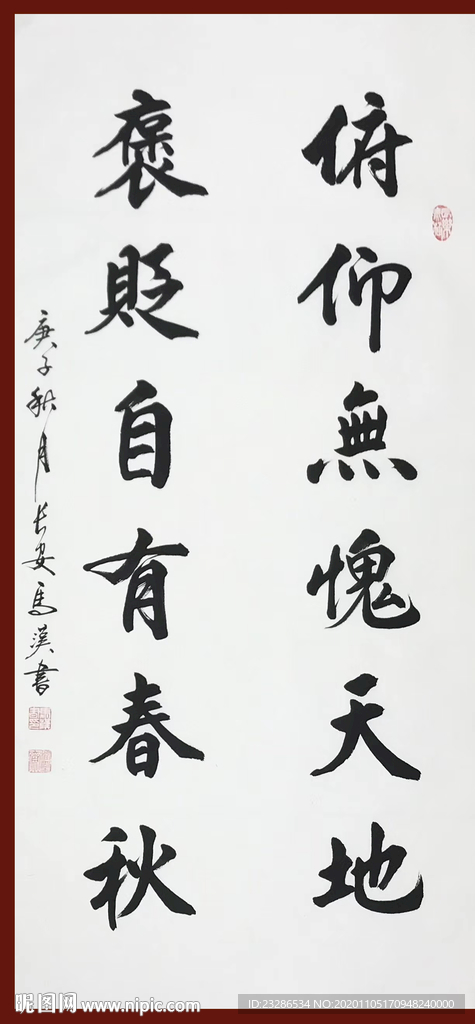 俯仰無愧天地
褒貶自有春秋
庚子秋月长安馬漢書
昵图网 www.nipic.com
ID:23286534 NO:20201105170948240000